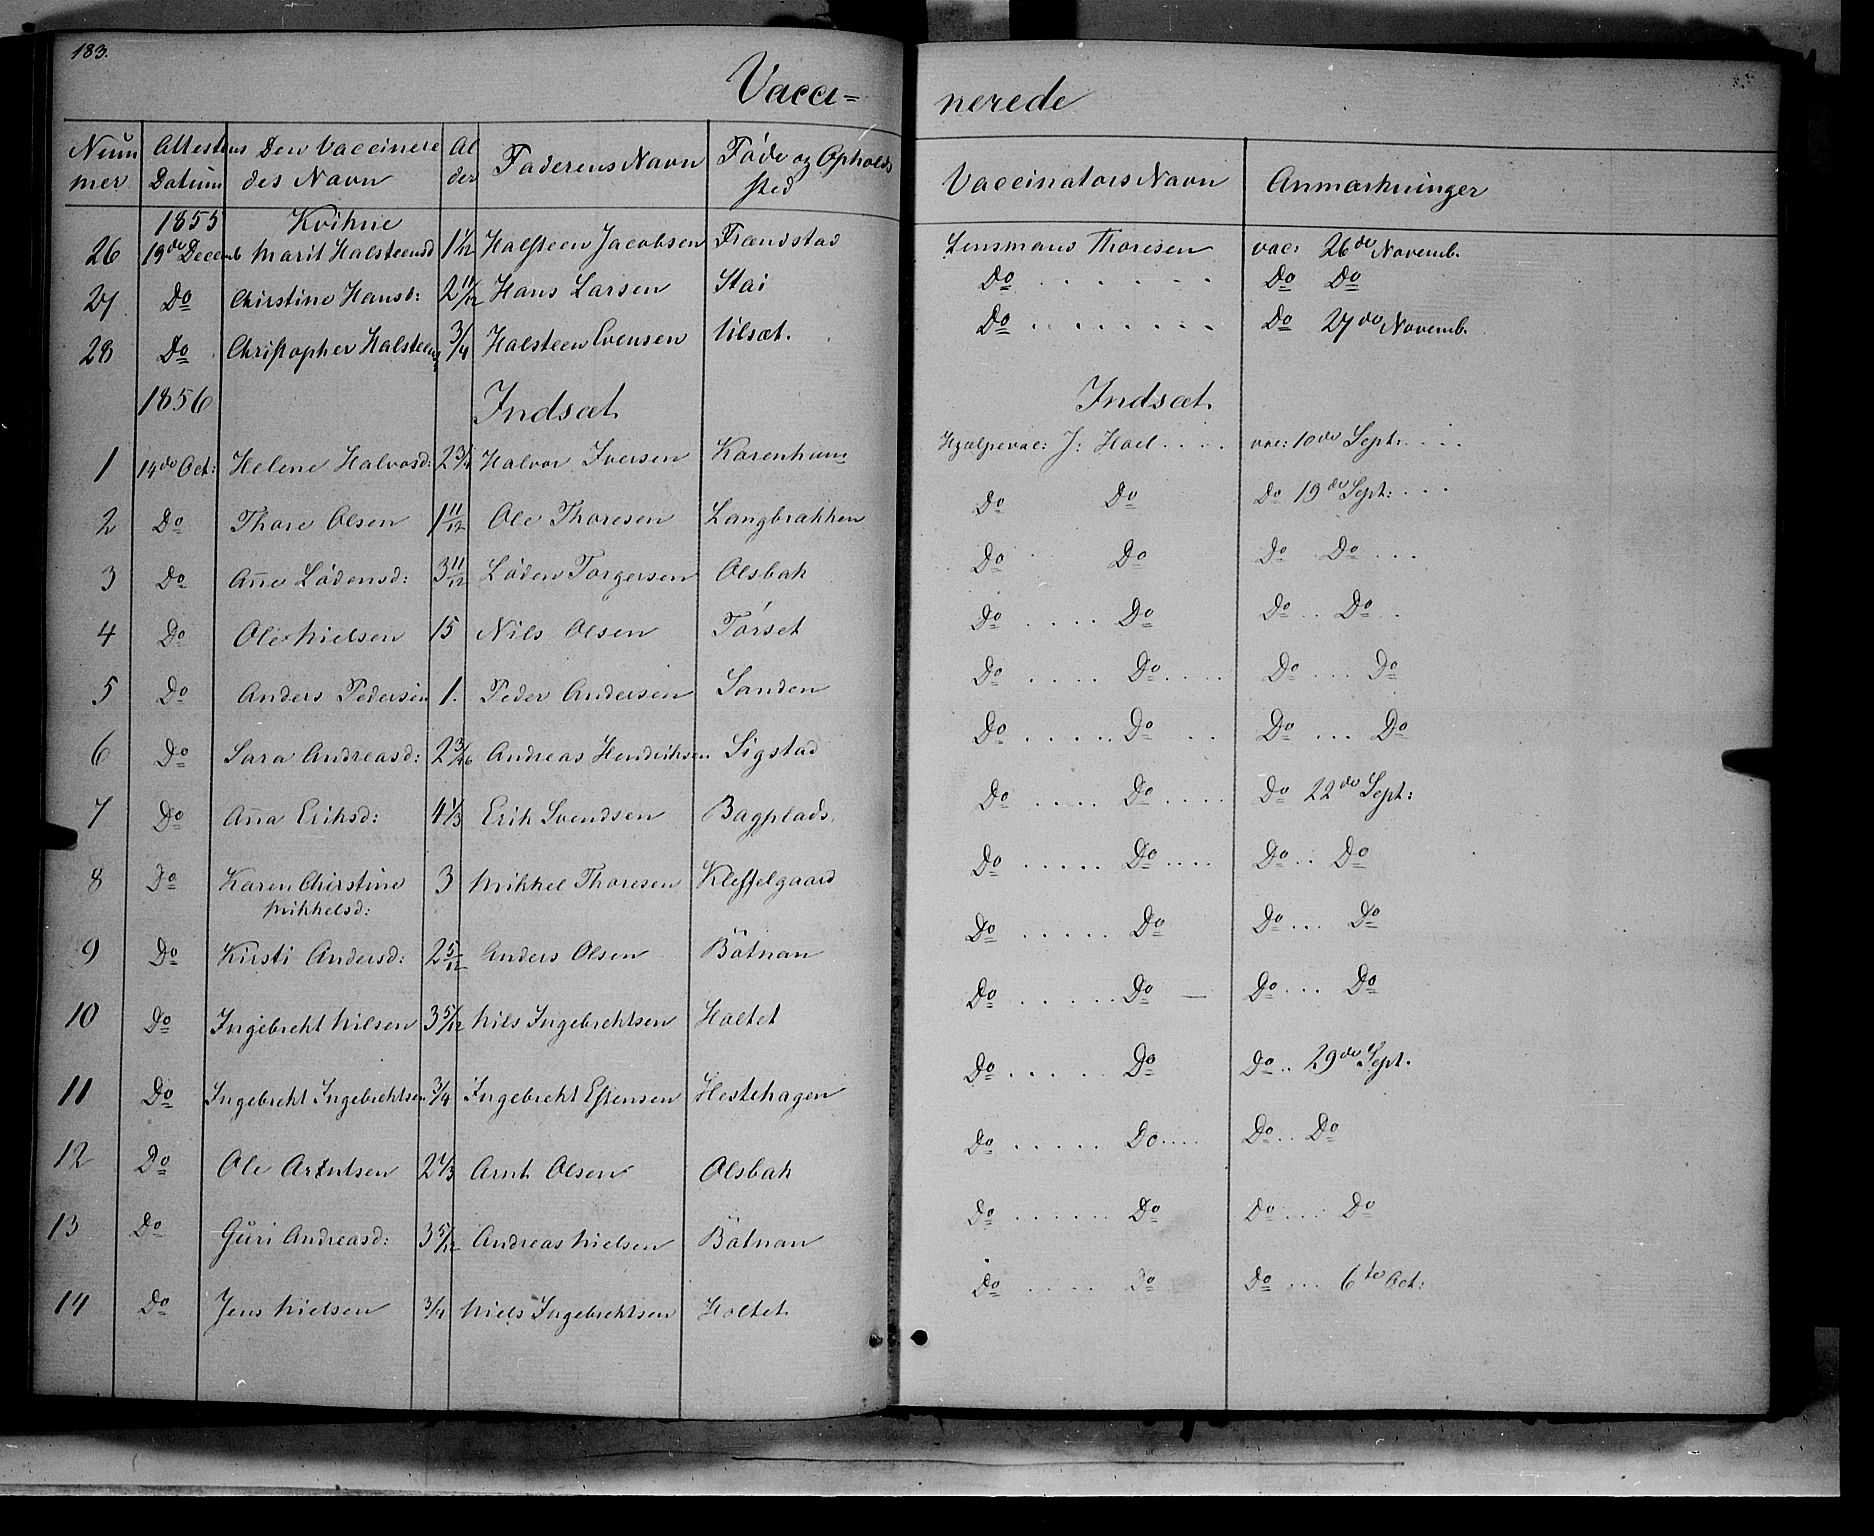 183.
Vacci= nerede
Num mer | Attestens Datum | Den Vaccinere des Navn | Al der | Faderens Navn | Føde og Opholds sted | Vaccinators Navn | Anmærkninger
1855 Kvikne
26 19de Decemb Marit Halsteensd 1 1/12 Halsteen Jacobsen Frandstad Lensmand Thoresen vac: 26de Novemb.
27 Do Chirstine Hansd: 2 11/12 Hans Larsen Stai Do . . . . . . Do Do
28 Do Christopher Halsteens 3/4 Halsteen Evensen Ulsæt. Do . . . . . . . Do 27de Novemb.
1856 Indsæt Indsæt.
1 14de Oct: Helene Halvosd: 2 3/4 Halvor Iversen Karenhum Hjælpevac: J: Hoel . . . . vac: 10de Sept: . . .
2 Do Thore Olsen 1 11/12 Ole Thoresen Langbrækken Do Do Do 19de Sept: . . .
3 Do Añe Lødensd: 3 11/12 Løden Torgersen Olsbak Do Do Do Do . . .
4 Do Ole Nielsen 15 Nils Olsen Tørset Do . . . . Do Do . . Do . .
5 Do Anders Pedersen 1. Peder Andersen Sanden Do . . . . Do . . . . Do . . . . Do
6 Do Sara Andreasd: 2 Andreas Hendriksen Sigstad Do . . . . . Do . . Do . . . Do
7 Do Aña Eriksd: 4 1/3 Erik Svendsen Bagplads. Do . . . . Do . . . . Do 22de Sept:
8 Do Karen Chirstine 3 Mikkel Thoresen Kleffelgaard Do . . . . . Do . . . . Do . . Do
Mikkelsd:
9 Do Kirsti Andersd: 2 5/12 Anders Olsen Bøtnan Do . . . . . Do Do . . . Do
10 Do Ingebrekt Nilsen 3 5/12 Nils Ingebrektsen Holtet Do . . . . . Do — Do . . . Do
11 Do Ingebrekt Ingebrektsen 3/4 Ingebrekt Estensen Hestehagen Do . . . . . Do Do . . 29de Sept.
12 Do Ole Arntsen 2 1/3 Arnt Olsen Olsbak Do . . . . . Do . . . . Do . . Do
13 Do Guri Andreasd: 3 5/12 Andreas Nielsen Bøtnan Do . . . . . . Do Do . . . Do
14 Do Jens Nielsen 3/4 Niels Ingebrektsen Holtet Do . . . . . Do Do . . . 6te Oct: